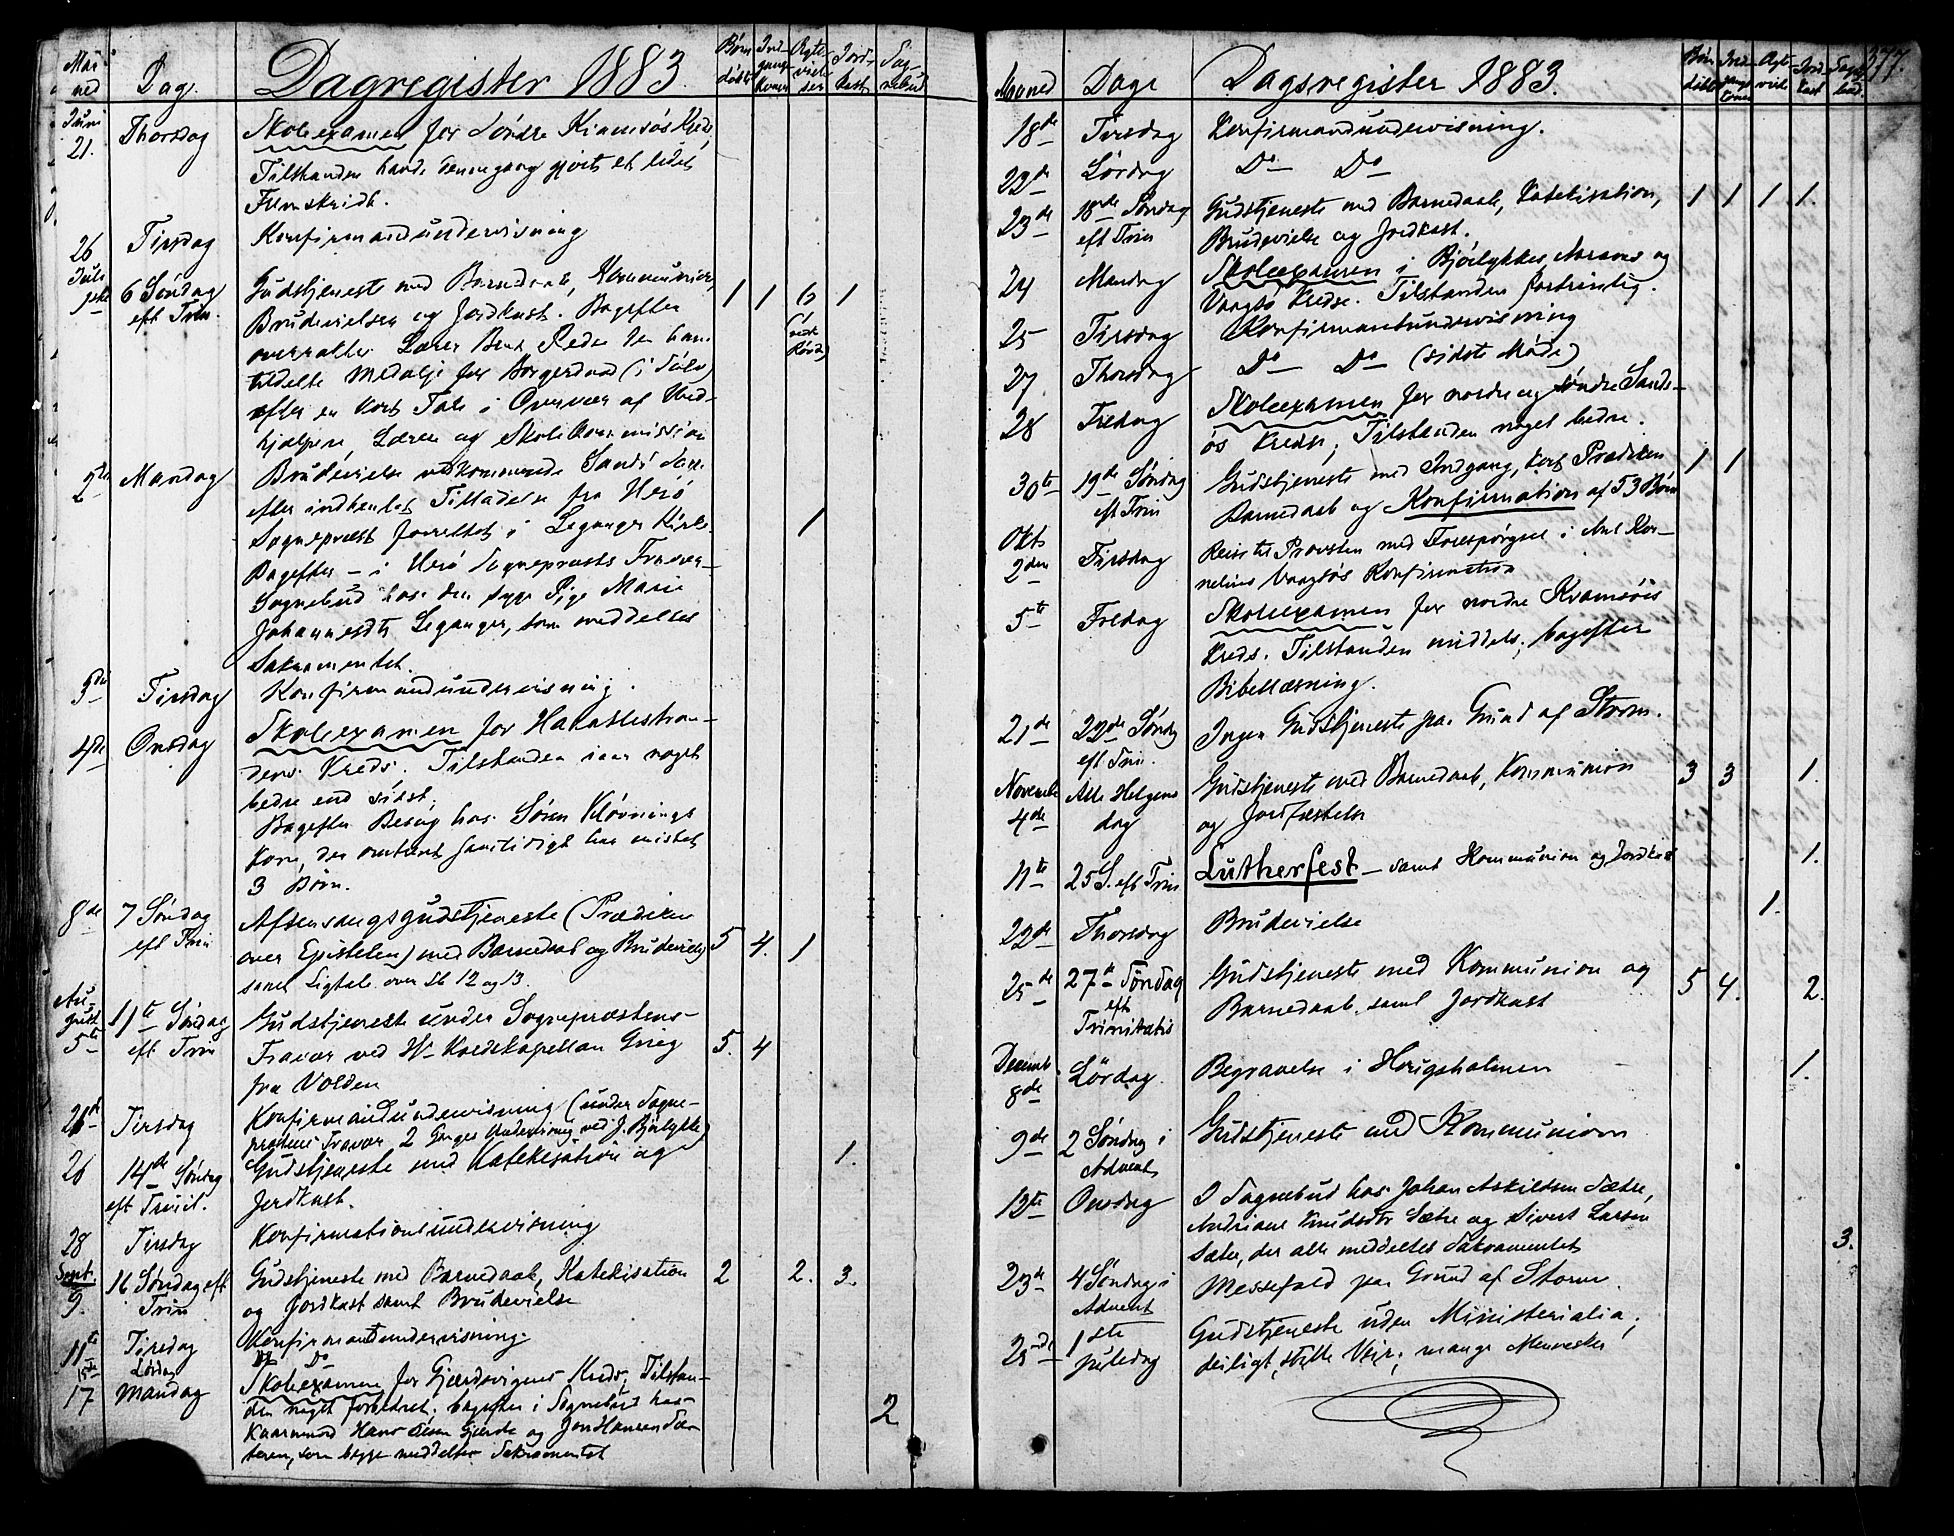 Maaned Dag. Dagregister 1883. Børn døbte Indgangskoner Ægtevielser Jordkast Sognebud
Juni
21. Thorsdag Skoleexamen for Søndre Kvamsøs Kreds,
Tilstanden havde dennegang gjort et lidet
Fremskridt.
26 Tirsdag Konfirmandundervisning
Juli
1ste 6 Søndag eft Trin. Gudstjeneste med Barnedaab, Kommunion, 1 1 6 1
Brudevielser og Jordkast. Bagefter
overraktes Lærer Bent Rede den ham
tildelte Medalje for Borgerdaad (i Sølv)
efter en kort Tale i Overvær af Med-
hjælpere, Lærere og Skolekommission
2den Mandag Brudevielse vedkommende Sands Sogn
efter indhentet Tilladelse fra Herø
Sognepræst forrettet i Leganger Kirke 1
Bagefter – i Herø Sognepræsts Fravær –
Sognebud hos den syge Pige Marie
Johannesdtr Leganger, som meddeltes
Sakramentet.
3die Tirsdag Konfirmandundervisning.
4de Onsdag Skoleexamen for Hakallestran-
dens Kreds. Tilstanden iaar noget
bedre end sidst;
Bagefter Besøg hos Søren Kløvnings
Kone, der omtrent samtidigt har mistet
3 Børn.
8de 7 Søndag eft Trin Aftensangsgudstjeneste (Prædiken
over Epistelen) med Barnedaab og Brudevielse 5 4. 1
samt Ligtale over Sl 12 og 13.
August
5te 11te Søndag eft Trin Gudstjeneste under Sognepræstens
Fravær ved Hr Kaldskapellan Grieg 5. 4
fra Volden
21de Tirsdag Konfirmandundervisning (under Sogne-
præstens Fravær 2 Ganges Undervisning ved J. Bjørlykke)
26 14de Søndag eft Trinit. Gudstjeneste med Katekisation og 1.
Jordkast.
28 Tirsdag Konfirmationsundervisning
Sept.
9. 16 Søndag eft Trin Gudstjeneste med Barnedaab, Katekisation 2 2. 3.
og Jordkast samt Brudevielse
11te Tirsdag Konfirmantundervisning.
15de Lørdag Do Do
17 Mandag Skoleexamen for Gjærdsvigens Kreds, Tilstan-
den noget forbedret. bagefter i Sognebud hos 2
Kaarmand Hans Gjerde og Jon Hansen Sæ-
teren, som begge meddeltes Sakramentet
Maaned Dage Dagsregister 1883. Børn døbte Indgangskoner Ægtvielse Jordkast Sognebud. 377.
18de Tirsdag Konfirmandundervisning.
22de Lørdag Do Do
23de 18de Søndag eft Trin Gudstjeneste med Barnedaab, Katekisation, 1 1 1 1.
Brudevielse og Jordkast.
24 Mandag Skoleexamen i Bjørlykkes, Aarams og
Vaagsø Kredse. Tilstanden fortrinlig.
25 Tirsdag Konfirmantundervisning
27. Thorsdag Do Do (sidste Møde)
28 Fredag Skoleexamen for nordre og søndre Sands-
øs Kredse; Tilstanden noget bedre.
30te 19de Søndag eft Trin Gudstjeneste med Indgang, kort Prædiken 1 1
Barnedaab og Konfirmation af 53 Børn
Oktb
2den Tirsdag Reise til Provsten med Forespørgsel i Anl Kor-
nelius Vaagsøs Konfirmation
5te Fredag Skoleexamen for nordre Kvamsøs
Kreds. Tilstanden middels; bagefter
Bibellæsning.
21de 22de Søndag eft Trin. Ingen Gudstjeneste paa Grund af Storm.
November
4de Alle Helgens dag Gudstjeneste med Barnedaab, Kommunion 3 3 1.
og Jordfæstelse
11te 25 S. eft Trin Lutherfest – samt Kommunion og Jordkast 1.
22de Thorsdag Brudevielse 1.
25de 27de Søndag eft Trinitatis Gudstjeneste med Kommunion og 5 4. 2.
Barnedaab samt Jordkast
Decemb
8de Lørdag. Begravelse i Haugsholmen 1.
9de 2 Søndag i Advent Gudstjeneste med Kommunion
12te Onsdag I Sognebud hos Johan Askildsen Sætre,
Andriane Knudsdtr Sætre og Sivert Larsen
Sætre, der alle meddeltes Sakramentet 3.
23de 4 Søndag i Advent Messefald paa Grund af Storm.
25de 1ste Juledag Gudstjeneste uden Ministerialia;
deiligt, stille Veir; mange Mennesker